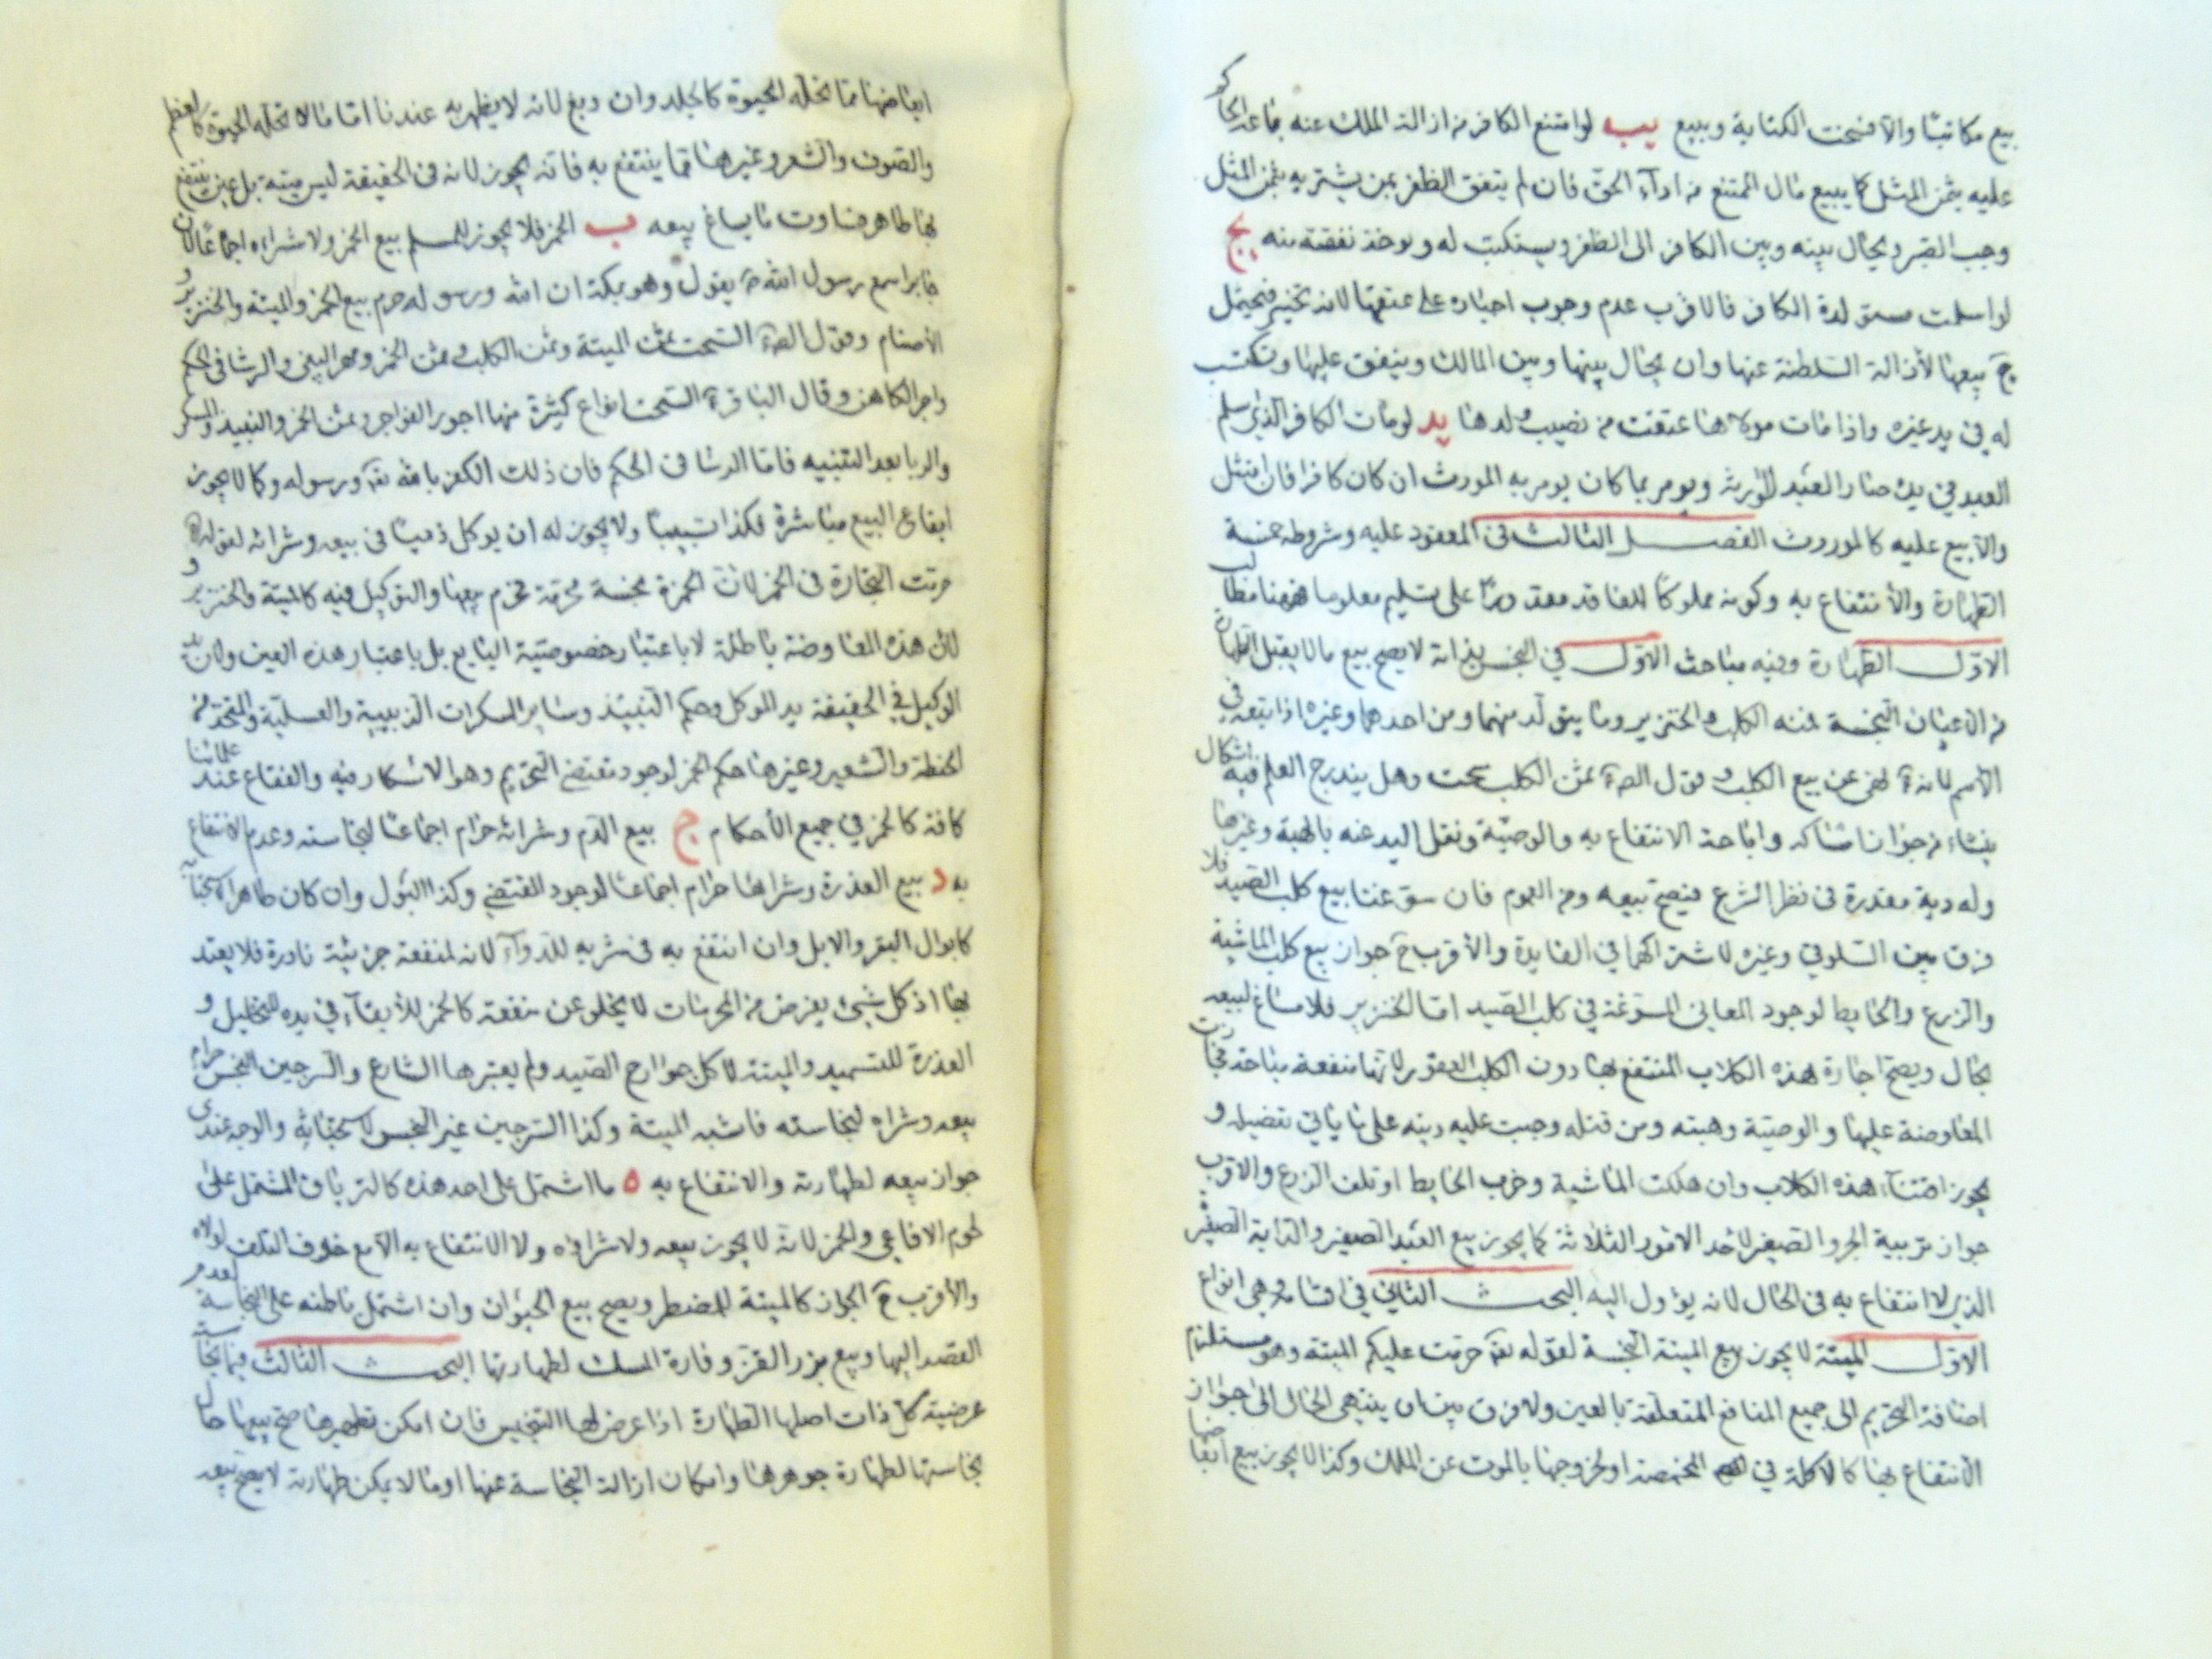 بيع مكاتبا والا فسخت الكتابة وبيع يب لو امتنع الكافر من ازالة الملك عنه باعه الحاكم
عليه بثمن المثل كما يبيع مال الممتنع من اداء الحق فان لم يتفق الظفر بمن يشتريه بثمن المثل
وجب الصبر ويحال بينه وبين الكافر الى الظفر ويستكسب له ويوخذ نفقته منه يج
لو اسلمت مستولدة الكافر فالاقرب عدم وجوب اجباره على عتقها لانه تخسير فيحتمل
ح بيعها لازالة السلطنة عنها وان يحال بينها وبين المالك وينفق عليها وتكتسب
له في يد غيره واذا مات مولاها عتقت من نصيب ولدها يد لو مات الكافر الذي اسلم
العبد في يده صار العبد للورثة ويومر بما كان يومر به المورث ان كان كافرا فان امتثل
والا بيع عليه كالموروث الفصل الثالث في المعقود عليه وشروطه خمسة
الطهارة والانتفاع به وكونه مملوكا للعاقد مقدورا على تسليمه معلوما فههنا مطالب
الاول الطهارة وفيه مباحث الاول في النجس بذاته لا يصح بيع ما لا يقبل الطهارة
من الاعيان النجسة فمنه الكلب والخنزير وما يتولد منهما ومن احدهما وغيره اذا تبعه في
الاسم لانه ع نهى عن بيع الكلب وقول الص ع ثمن الكلب سحت وهل يندرج المعلم فيه اشكال
ينشاء من جواز امساكه واباحة الانتفاع به والوصية ونقل اليد عنه بالهبة وغيرها
وله دية مقدرة في نظر الشرع فيصح بيعه ومن العموم فان سوغنا بيع كلب الصيد فلا
فرق بين السلوقي وغيره لاشتراكهما في الفايدة والاقرب ح جواز بيع كلب الماشية
والزرع والحايط لوجود المعاني المسوغة في كلب الصيد اما الخنزير فلا مساغ لبيعه
بحال ويصح اجارة هذه الكلاب المنتفع بها دون الكلب العقور لانها منفعة مباحة فجازت
المعاوضة عليها والوصية وهبته ومن قتله وجبت عليه ديته على ما ياتي تفصيله و
يجوز اقتناء هذه الكلاب وان هلكت الماشية وخرب الحايط او تلف الزرع والاقرب
جواز تربية الجرو الصغير لاحد الامور الثلاثة كما يجوز بيع العبد الصغير والدابة الصغيرة
الذي لا انتفاع به في الحال لانه يؤول اليه البحث الثاني في اقسامه وهي انواع
الاول الميتة لا يجوز بيع الميتة النجسة لقوله تع حرمت عليكم الميتة وهو مستلزم
اضافة التحريم الى جميع المنافع المتعلقة بالعين ولا فرق بين ان ينتهي الحال الى جواز
الانتفاع بها كالاكلة في المخمصة او لخروجها بالموت عن الملك وكذا لا يجوز بيع ابعاضها
ابعاضها مما تحله الحيوة كالجلد وان دبغ لانه لا يطهر به عندنا اما ما لا تحله الحيوة كالعظم
والصوف والشعر وغيرها مما ينتفع به فانه يجوز لانه في الحقيقة ليس ميتة بل عين ينتفع
بها طاهر فساوت ما يساغ بيعه ب الخمر فلا يجوز للمسلم بيع الخمر ولا شراءه اجماعا لان
جابرا سمع رسول الله ص يقول وهو بمكة ان الله ورسوله حرم بيع الخمر والميتة والخنزير و
الاصنام وقول الص ع السحت ثمن الميتة وثمن الكلب وثمن الخمر ومهر البغي والرشا في الحكم
واجر الكاهن وقال الباقر ع السحت انواع كثيرة منها اجور الفواجر وثمن الخمر والنبيذ والمسكر
والربا بعد البينة فاما الرشا في الحكم فان ذلك الكفر بالله تع ورسوله وكما لا يجوز
ايقاع البيع مباشرة فكذا تسبيبا ولا يجوز له ان يوكل ذميا في بيعه وشرائه لقوله ع
حرمت التجارة في الخمر لان الخمرة نجسة محرمة فحرم بيعها والتوكيل فيه كالميتة والخنزير و
لان هذه المعاوضة باطلة لا باعتبار خصوصية البايع بل باعتبار هذه العين ولان يد
الوكيل في الحقيقة يد الموكل وحكم النبيذ وساير المسكرات الزبيبية والعسلية والمتخذ من
الحنطة والشعير وغيرها حكم الخمر لوجود مقتضي التحريم وهو الاسكار فيه والفقاع عند علمائنا
كافة كالخمر في جميع الاحكام ج بيع الدم وشرائه حرام اجماعا لنجاسته وعدم الانتفاع
به د بيع العذرة وشراها حرام اجماعا لوجود المقتضي وكذا البول وان كان طاهرا لاستخباثه
كابوال البقر والابل وان انتفع به في شربه للدواء لانه لمنفعة جزئية نادرة فلا يعتد
بها اذ كل شيئ يفرض من المحرمات لا يخلو عن منفعة كالخمر للابقاء في يده للتخليل و
العذرة للتسميد والميتة لاكل جوارح الصيد ولم يعتبرها الشارع والسرجين النجس حرام
بيعه وشراه لنجاسته فاشبه الميتة وكذا السرجين غير النجس لاستخباثه والوجه عندي
جواز بيعه لطهارته والانتفاع به ه ما اشتمل على احد هذه كالترياق المشتمل على
لحوم الافاعي والخمر لانه لا يجوز بيعه ولا شراؤه ولا الانتفاع به الا مع خوف التلف لولاه
والاقرب ح الجواز كالميتة للمضطر ويصح بيع الحيوان وان اشتمل باطنه على النجاسة لعدم
القصد اليها وبيع بزر القز وفارة المسك لطهارتها البحث الثالث فيما نجاسته
عرضية كل ذات اصلها الطهارة اذا عرض لها التنجيس فان امكن تطهيرها صح بيعها حال
نجاستها لطهارة جوهرها وامكان ازالة النجاسة عنها او ما لا يمكن طهارته لا يصح بيعه